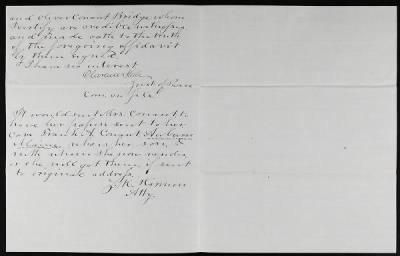 and Oliver Conant Bridge whom
I certify are credible witnesses
and made oath to the truth
of the foregoing affidavit
by them signed.
I have no interest
Just of Peace
Com on file
It would suit Mrs. Conant to
have her papers sent to her
Care Frank A. Conant Auburn
Maine who is her son, &
with whom she now resides
or she will get them if sent
to original address.
Atty.